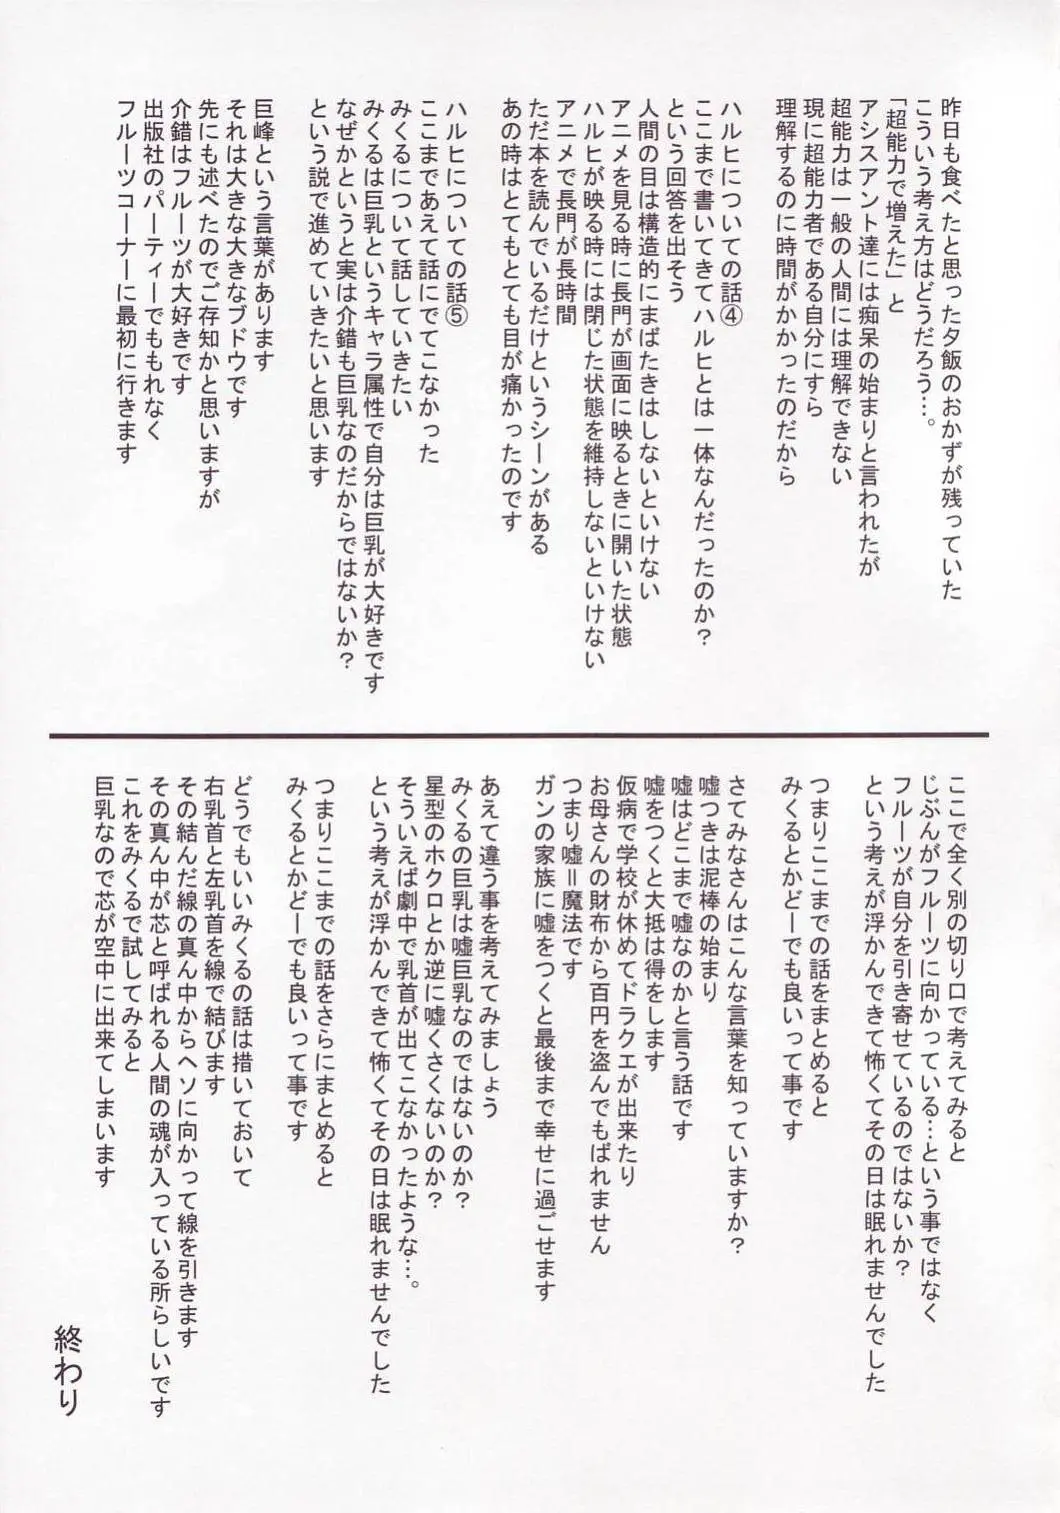 昨日も食べたと思った夕飯のおかずが残っていた
こういう考え方はどうだろう…。
「超能力で増えた」と
アシスアント達には痴呆の始まりと言われたが
超能力は一般の人間には理解できない
現に超能力者である自分にすら
理解するのに時間がかかったのだから
ハルヒについての話④
ここまで書いてきてハルヒとは一体なんだったのか？
という回答を出そう
人間の目は構造的にまばたきはしないといけない
アニメを見る時に長門が画面に映るときに開いた状態
ハルヒが映る時には閉じた状態を維持しないといけない
アニメで長門が長時間
ただ本を読んでいるだけというシーンがある
あの時はとてもとても目が痛かったのです
ハルヒについての話⑤
ここまであえて話にでてこなかった
みくるについて話していきたい
みくるは巨乳というキャラ属性で自分は巨乳が大好きです
なぜかというと実は介錯も巨乳なのだからではないか？
という説で進めていきたいと思います
巨峰という言葉があります
それは大きな大きなブドウです
先にも述べたのでご存知かと思いますが
介錯はフルーツが大好きです
出版社のパーティーでももれなく
フルーツコーナーに最初に行きます
ここで全く別の切り口で考えてみると
じぶんがフルーツに向かっている…という事ではなく
フルーツが自分を引き寄せているのではないか？
という考えが浮かんできて怖くてその日は眠れませんでした
つまりここまでの話をまとめると
みくるとかどーでも良いって事です
さてみなさんはこんな言葉を知っていますか？
嘘つきは泥棒の始まり
嘘はどこまで嘘なのかと言う話です
嘘をつくと大抵は得をします
仮病で学校が休めてドラクエが出来たり
お母さんの財布から百円を盗んでもばれません
つまり嘘＝魔法です
ガンの家族に嘘をつくと最後まで幸せに過ごせます
あえて違う事を考えてみましょう
みくるの巨乳は嘘巨乳なのではないのか？
星型のホクロとか逆に嘘くさくないのか？
そういえば劇中で乳首が出てこなかったような…。
という考えが浮かんできて怖くてその日は眠れませんでした
つまりここまでの話をさらにまとめると
みくるとかどーでも良いって事です
どうでもいいみくるの話は措いておいて
右乳首と左乳首を線で結びます
その結んだ線の真ん中からヘソに向かって線を引きます
その真ん中が芯と呼ばれる人間の魂が入っている所らしいです
これをみくるで試してみると
巨乳なので芯が空中に出来てしまいます
終わり